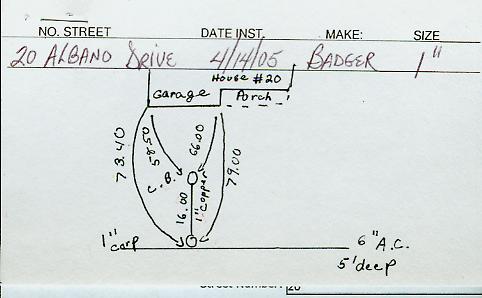 NO. STREET DATE INST. MAKE: SIZE
20 ALBANO DRIVE 4/14/05 BADGER 1"
HOUSE #20
Garage Porch
73.40 58.50 66.00 79.00
C.B.
16.00 1" Copper
1" corp 6" A.C.
5' deep
20